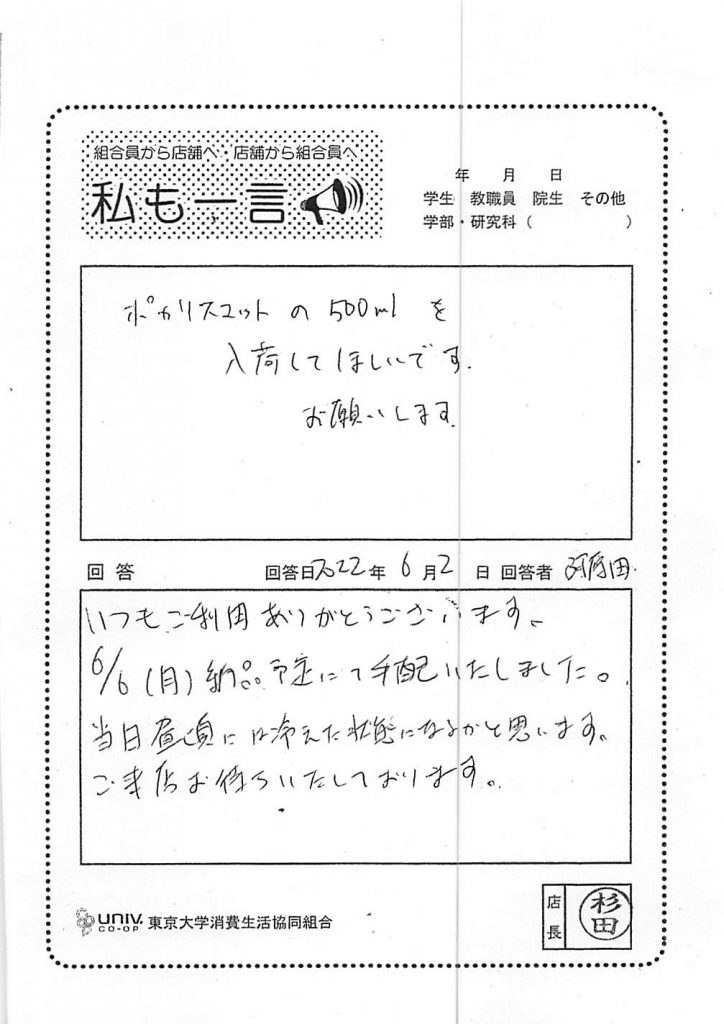 組合員から店舗へ 店舗から組合員へ
私も一言
年 月 日
学生 教職員 院生 その他
学部・研究科( )
ポカリスエットの500mlを
入荷してほしいです.
お願いします.
回答 回答日2022年6月2日 回答者
いつもご利用ありがとうございます。
6/6(月)納品予定にて手配いたしました。
当日昼頃には冷えた状態になるかと思います。
ご来店お待ちいたしております。
UNIV. CO-OP 東京大学消費生活協同組合
店長 杉田